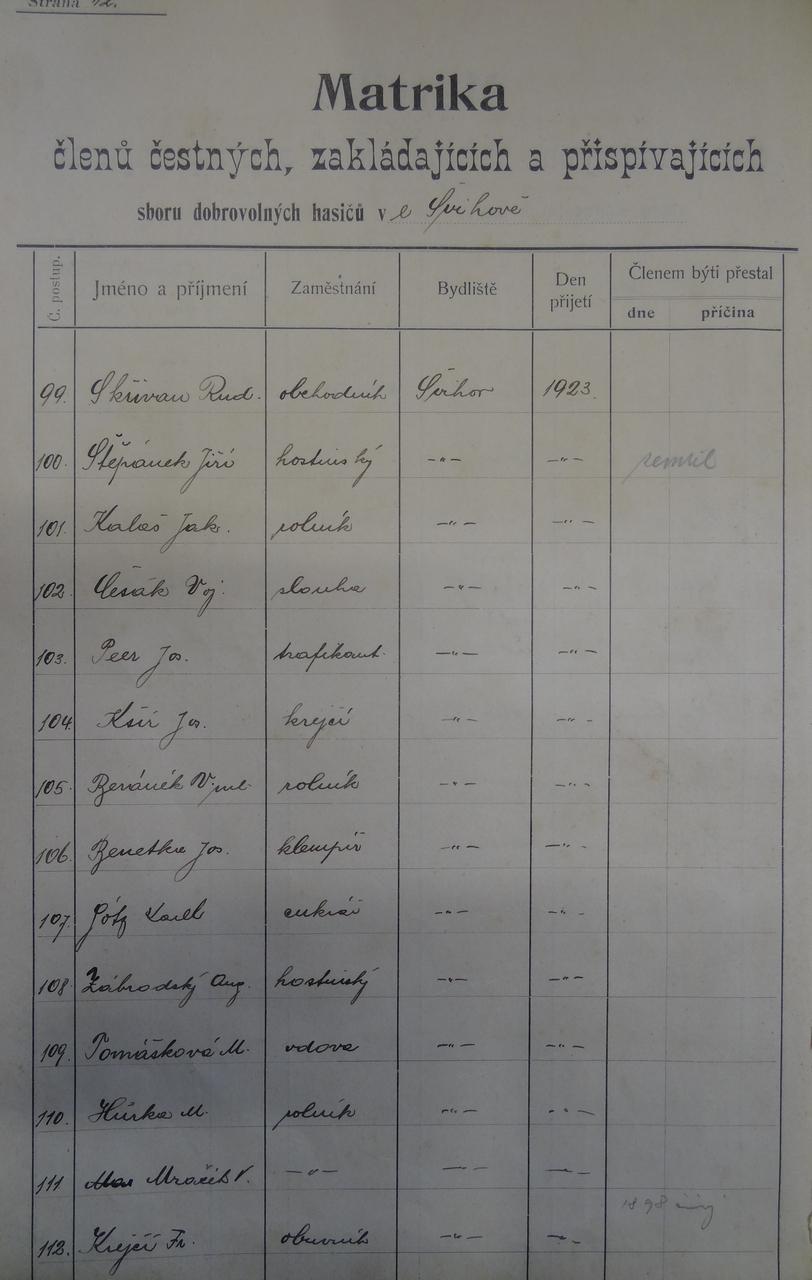 Strana 12.
Matrika
členů čestných, zakládajících a přispívajících
sboru dobrovolných hasičů v e Švihově
Č. postup. Jméno a příjmení Zaměstnání Bydliště Den přijetí Členem býti přestal
dne příčina
99. Skřivan Rud. obchodník Švihov 1923.
100. Štěpánek Jiří hostinský -"- -"- zemřel
101. Kalaš Jak. rolník -"- -"-
102. Češák Voj. slouha -"- -"-
103. Peer Jos. trafikant. -"- -"-
104. Kšír Jos. krejčí -"- -"-
105. Beránek V. ml. rolník -"- -"-
106. Benetka Jos. klempíř -"- -"-
107. Götz Karel cukrář -"- -"-
108 Zábrodský Aug. hostinský -"- -"-
109. Tomášková M. vdova -"- -"-
110. Hůrka M. rolník -"- -"-
111 Mraček V. -"- -"- -"-
1898
112. Krejčí Fr. obuvník -"- -"-